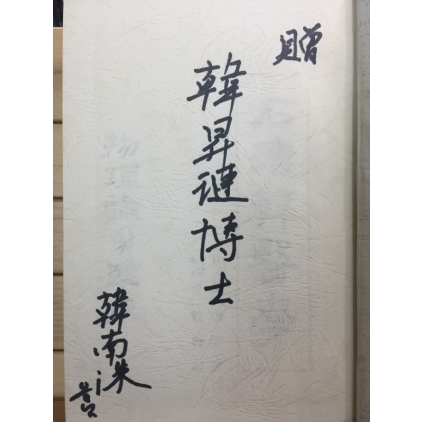 贈
韓昇璉博士
韓南洙